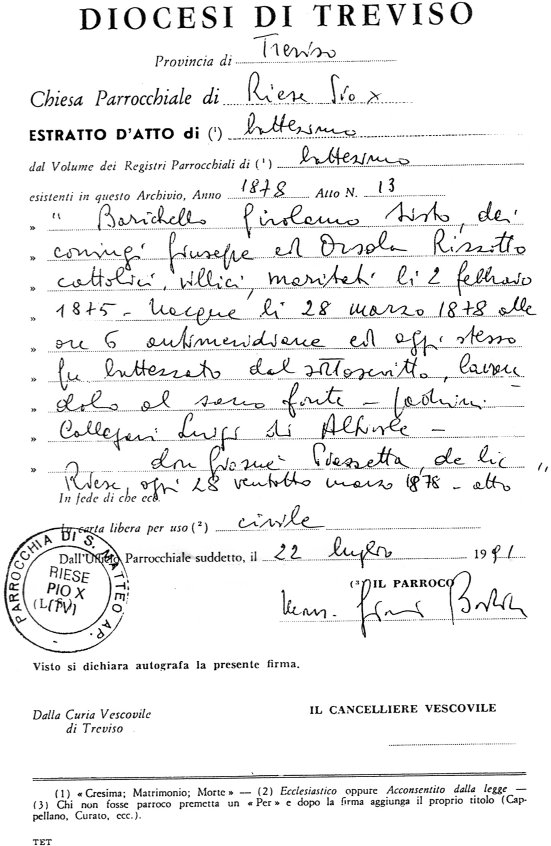 DIOCESI DI TREVISO
Provincia di Treviso
Chiesa Parrocchiale di Riese Pio X
ESTRATTO D'ATTO di (¹) battesimo
dal Volume dei Registri Parrocchiali di (¹) battesimo
esistenti in questo Archivio, Anno 1878 Atto N. 13
» " Barichello Girolamo Sisto, dei
» coniugi Giuseppe ed Orsola Rizzotto
» cattolici, villici, maritati li 2 febbraio
» 1875 - Nacque li 28 marzo 1878 alle
» ore 6 antimeridiane ed oggi stesso
» fu battezzato dal sottoscritto, lavan
» dolo al sacro fonte - Padrini:
» Luigi di Altivole -
» don Giosuè de lic "
Riese, oggi 28 ventotto marzo 1878 - atto
In fede di che ecc.
In carta libera per uso (²) civile
Dall'Ufficio Parrocchiale suddetto, il 22 luglio 1991
PARROCCHIA DI S. MATTEO AP.
RIESE
PIO X
(TV)
(L.
(³) IL PARROCO
Visto si dichiara autografa la presente firma.
Dalla Curia Vescovile
di Treviso
IL CANCELLIERE VESCOVILE
(1) « Cresima; Matrimonio; Morte » — (2) Ecclesiastico oppure Acconsentito dalla legge —
(3) Chi non fosse parroco premetta un « Per » e dopo la firma aggiunga il proprio titolo (Cap-
pellano, Curato, ecc.).
TET